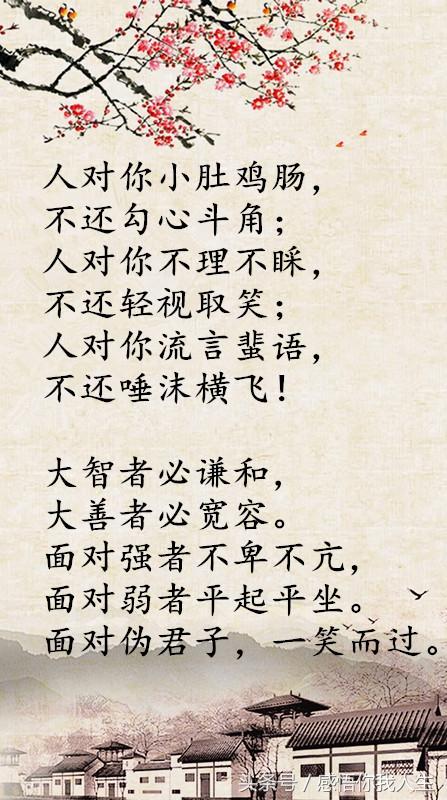 人对你小肚鸡肠，
不还勾心斗角；
人对你不理不睬，
不还轻视取笑；
人对你流言蜚语，
不还唾沫横飞！
大智者必谦和，
大善者必宽容。
面对强者不卑不亢，
面对弱者平起平坐。
面对伪君子，一笑而过。
头条号／感悟你我人生